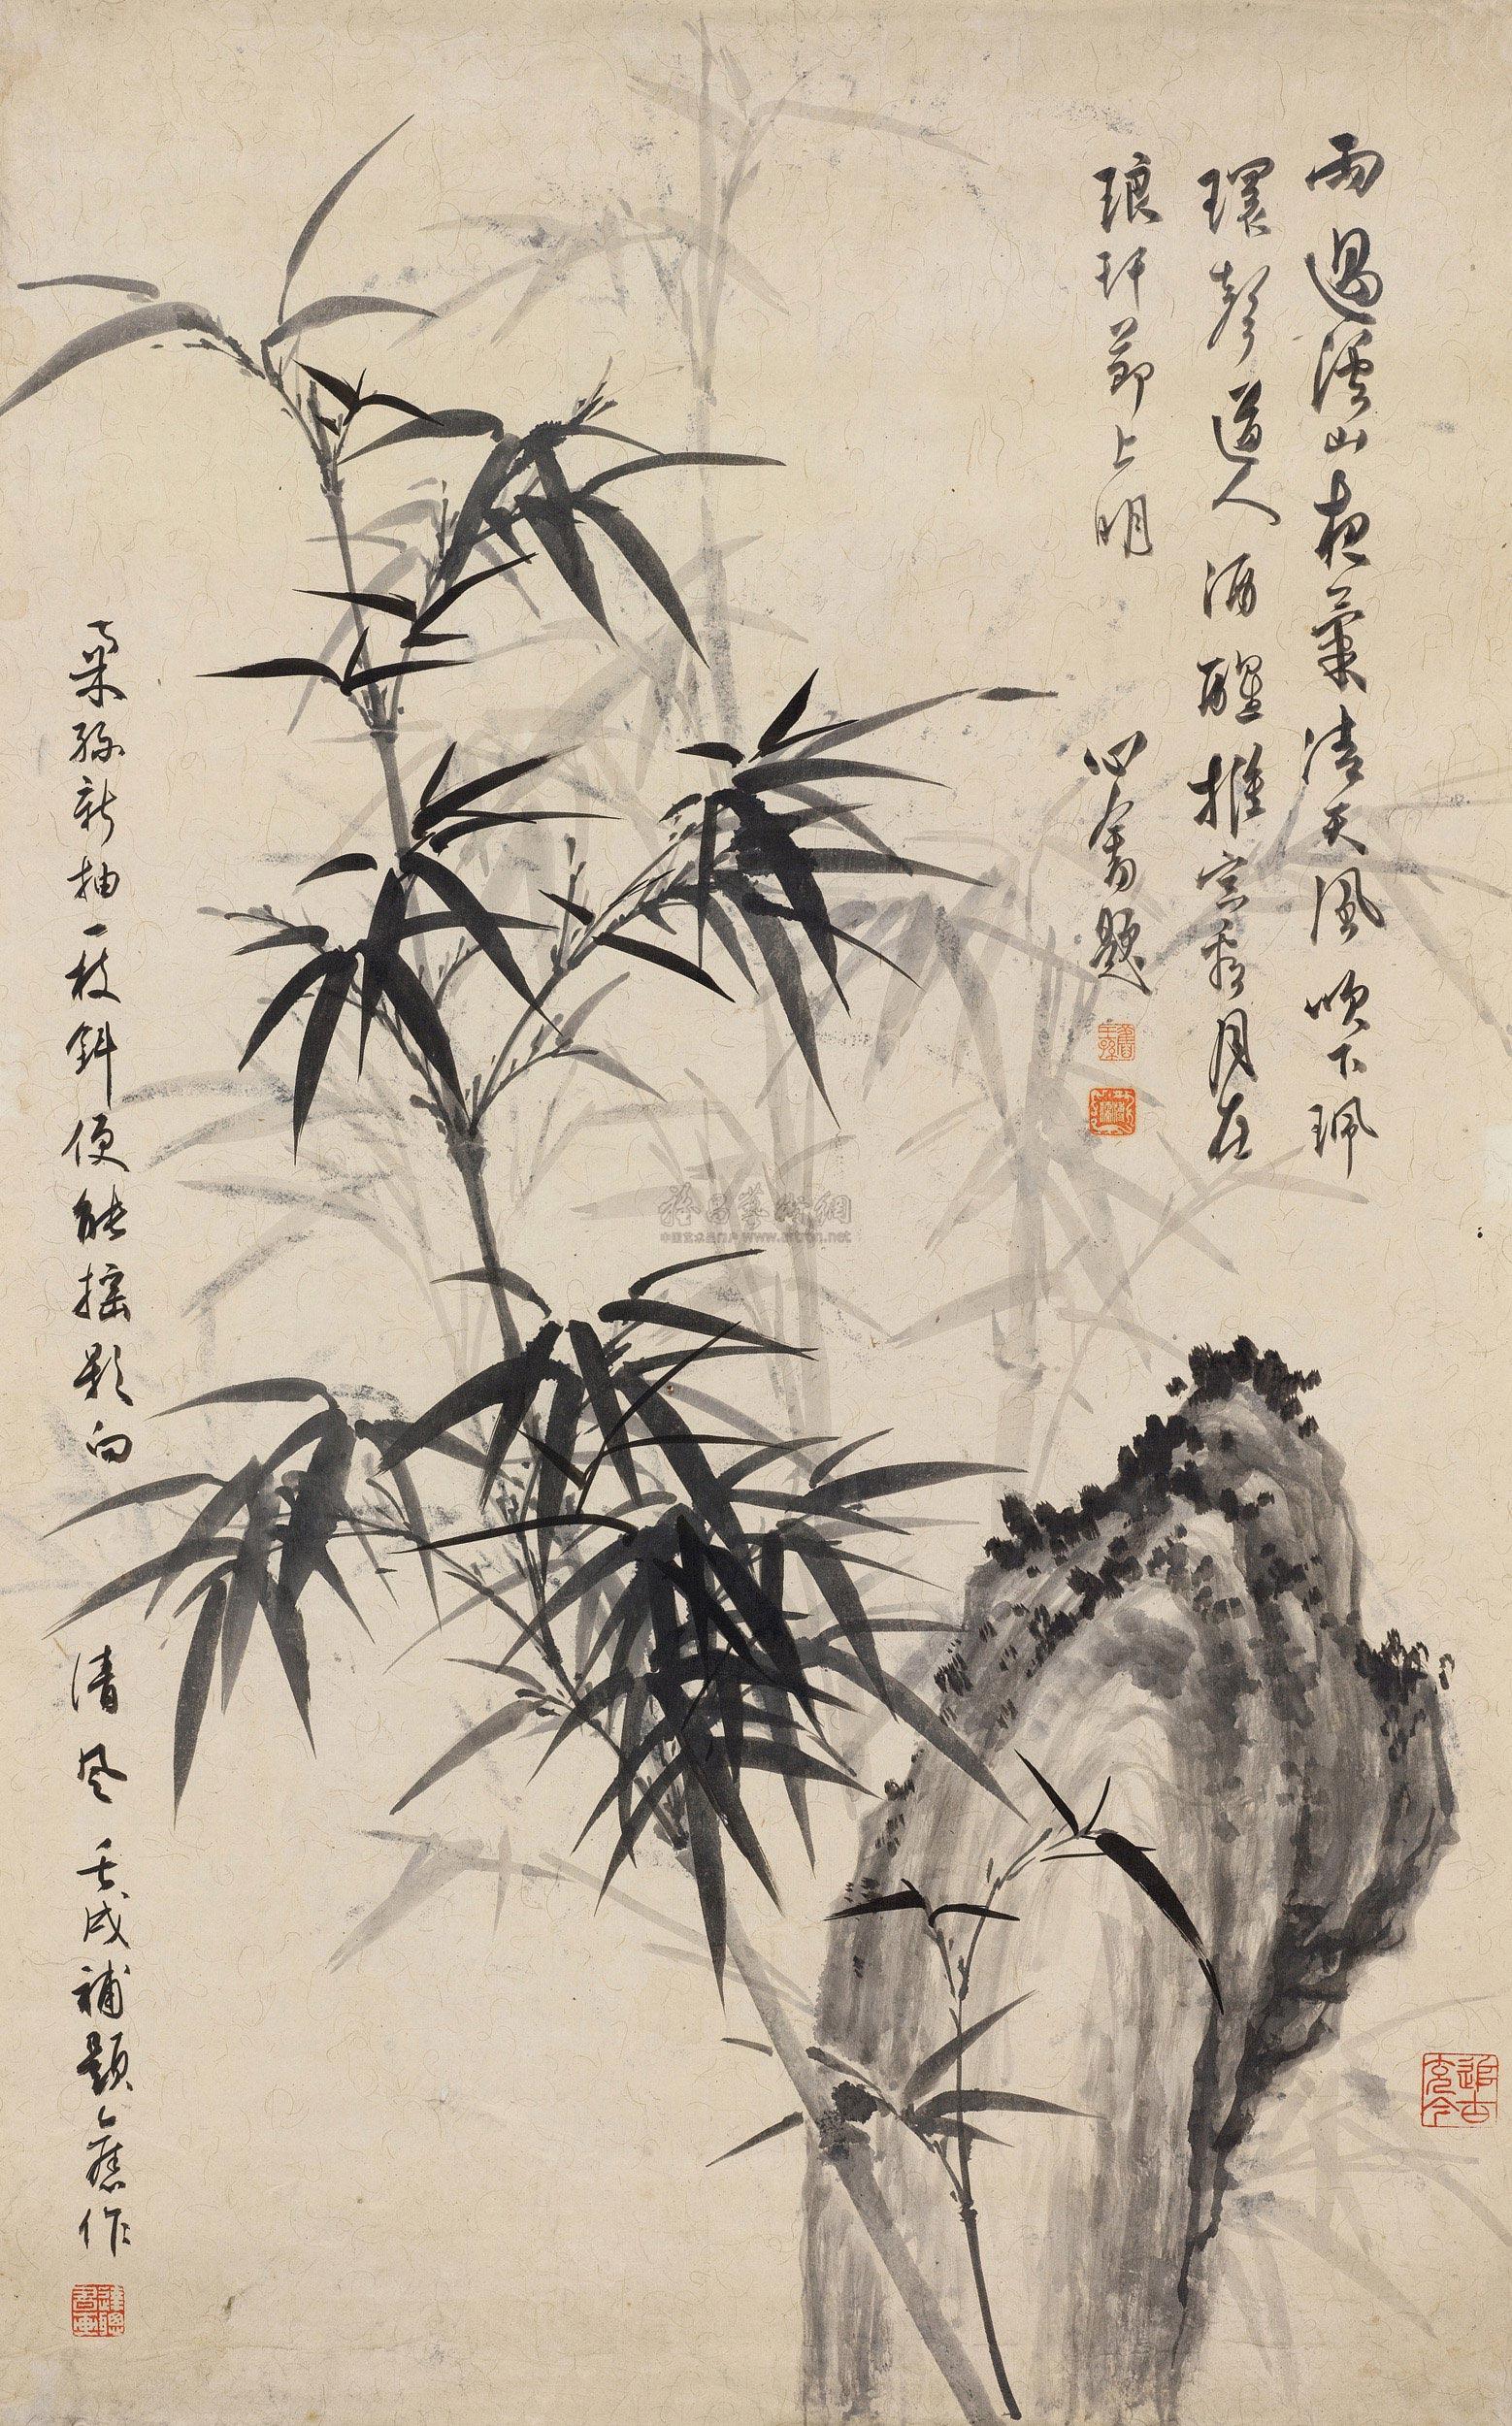 雨過溪山夜氣清天風吹下珮
環聲道人酒醒推窓看月在
琅玕節上明
心畬題
葉孫新抽一枝斜便能搖影向
清風 壬戌補題舊作
追古
雅昌藝術網
www.artron.net